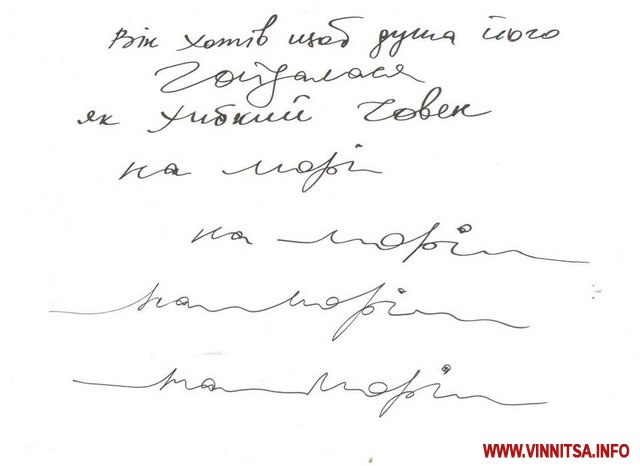 Він хотів щоб душа його
гойдалася
як хибкий човек
на морі
на морі
на морі
на морі
WWW.VINNITSA.INFO